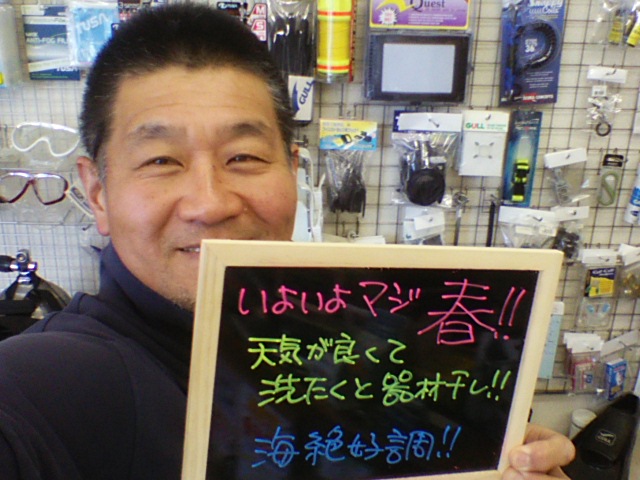 Quest
TUSA
GULL
GULL
いよいよマジ春!!
天気が良くて
洗たくと器材干し!!
海絶好調!!